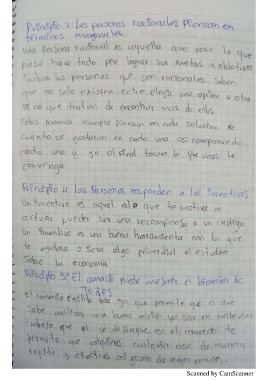 Principio 3: Las personas racionales piensan en
términos marginales.
Una persona racional es aquella que pase lo que
pase hace todo por lograr sus metas y objetivos
también las personas que son racionales saben
que no solo existen entre elegir una opción u otra
si no que tratan de encontrar más de
Estas personas siempre piensan en cada solución de
cuanto se gastaron en cada una así comparando
cada una y ya al final tomar lo que más le
convenga.
Principio 4: Las Personas responden a los incentivos
Un incentivo es aquel que te motiva a
actuar puede ser una recompensa o un castigo.
Un incentivo es una buena herramienta con la que
te ayudara o sera algo primordial al estudiar
sobre la economía.
Principio 5: El comercio puede mejorar el bienestar de
Todos
el comercio es que permite que el que
sabe realizar una buena acción ya sea en cualquier
trabajo que el se desempeñe, así el comercio te
permite que adquieras cualquier cosa de manera
rapida y efectiva
Scanned by CamScanner